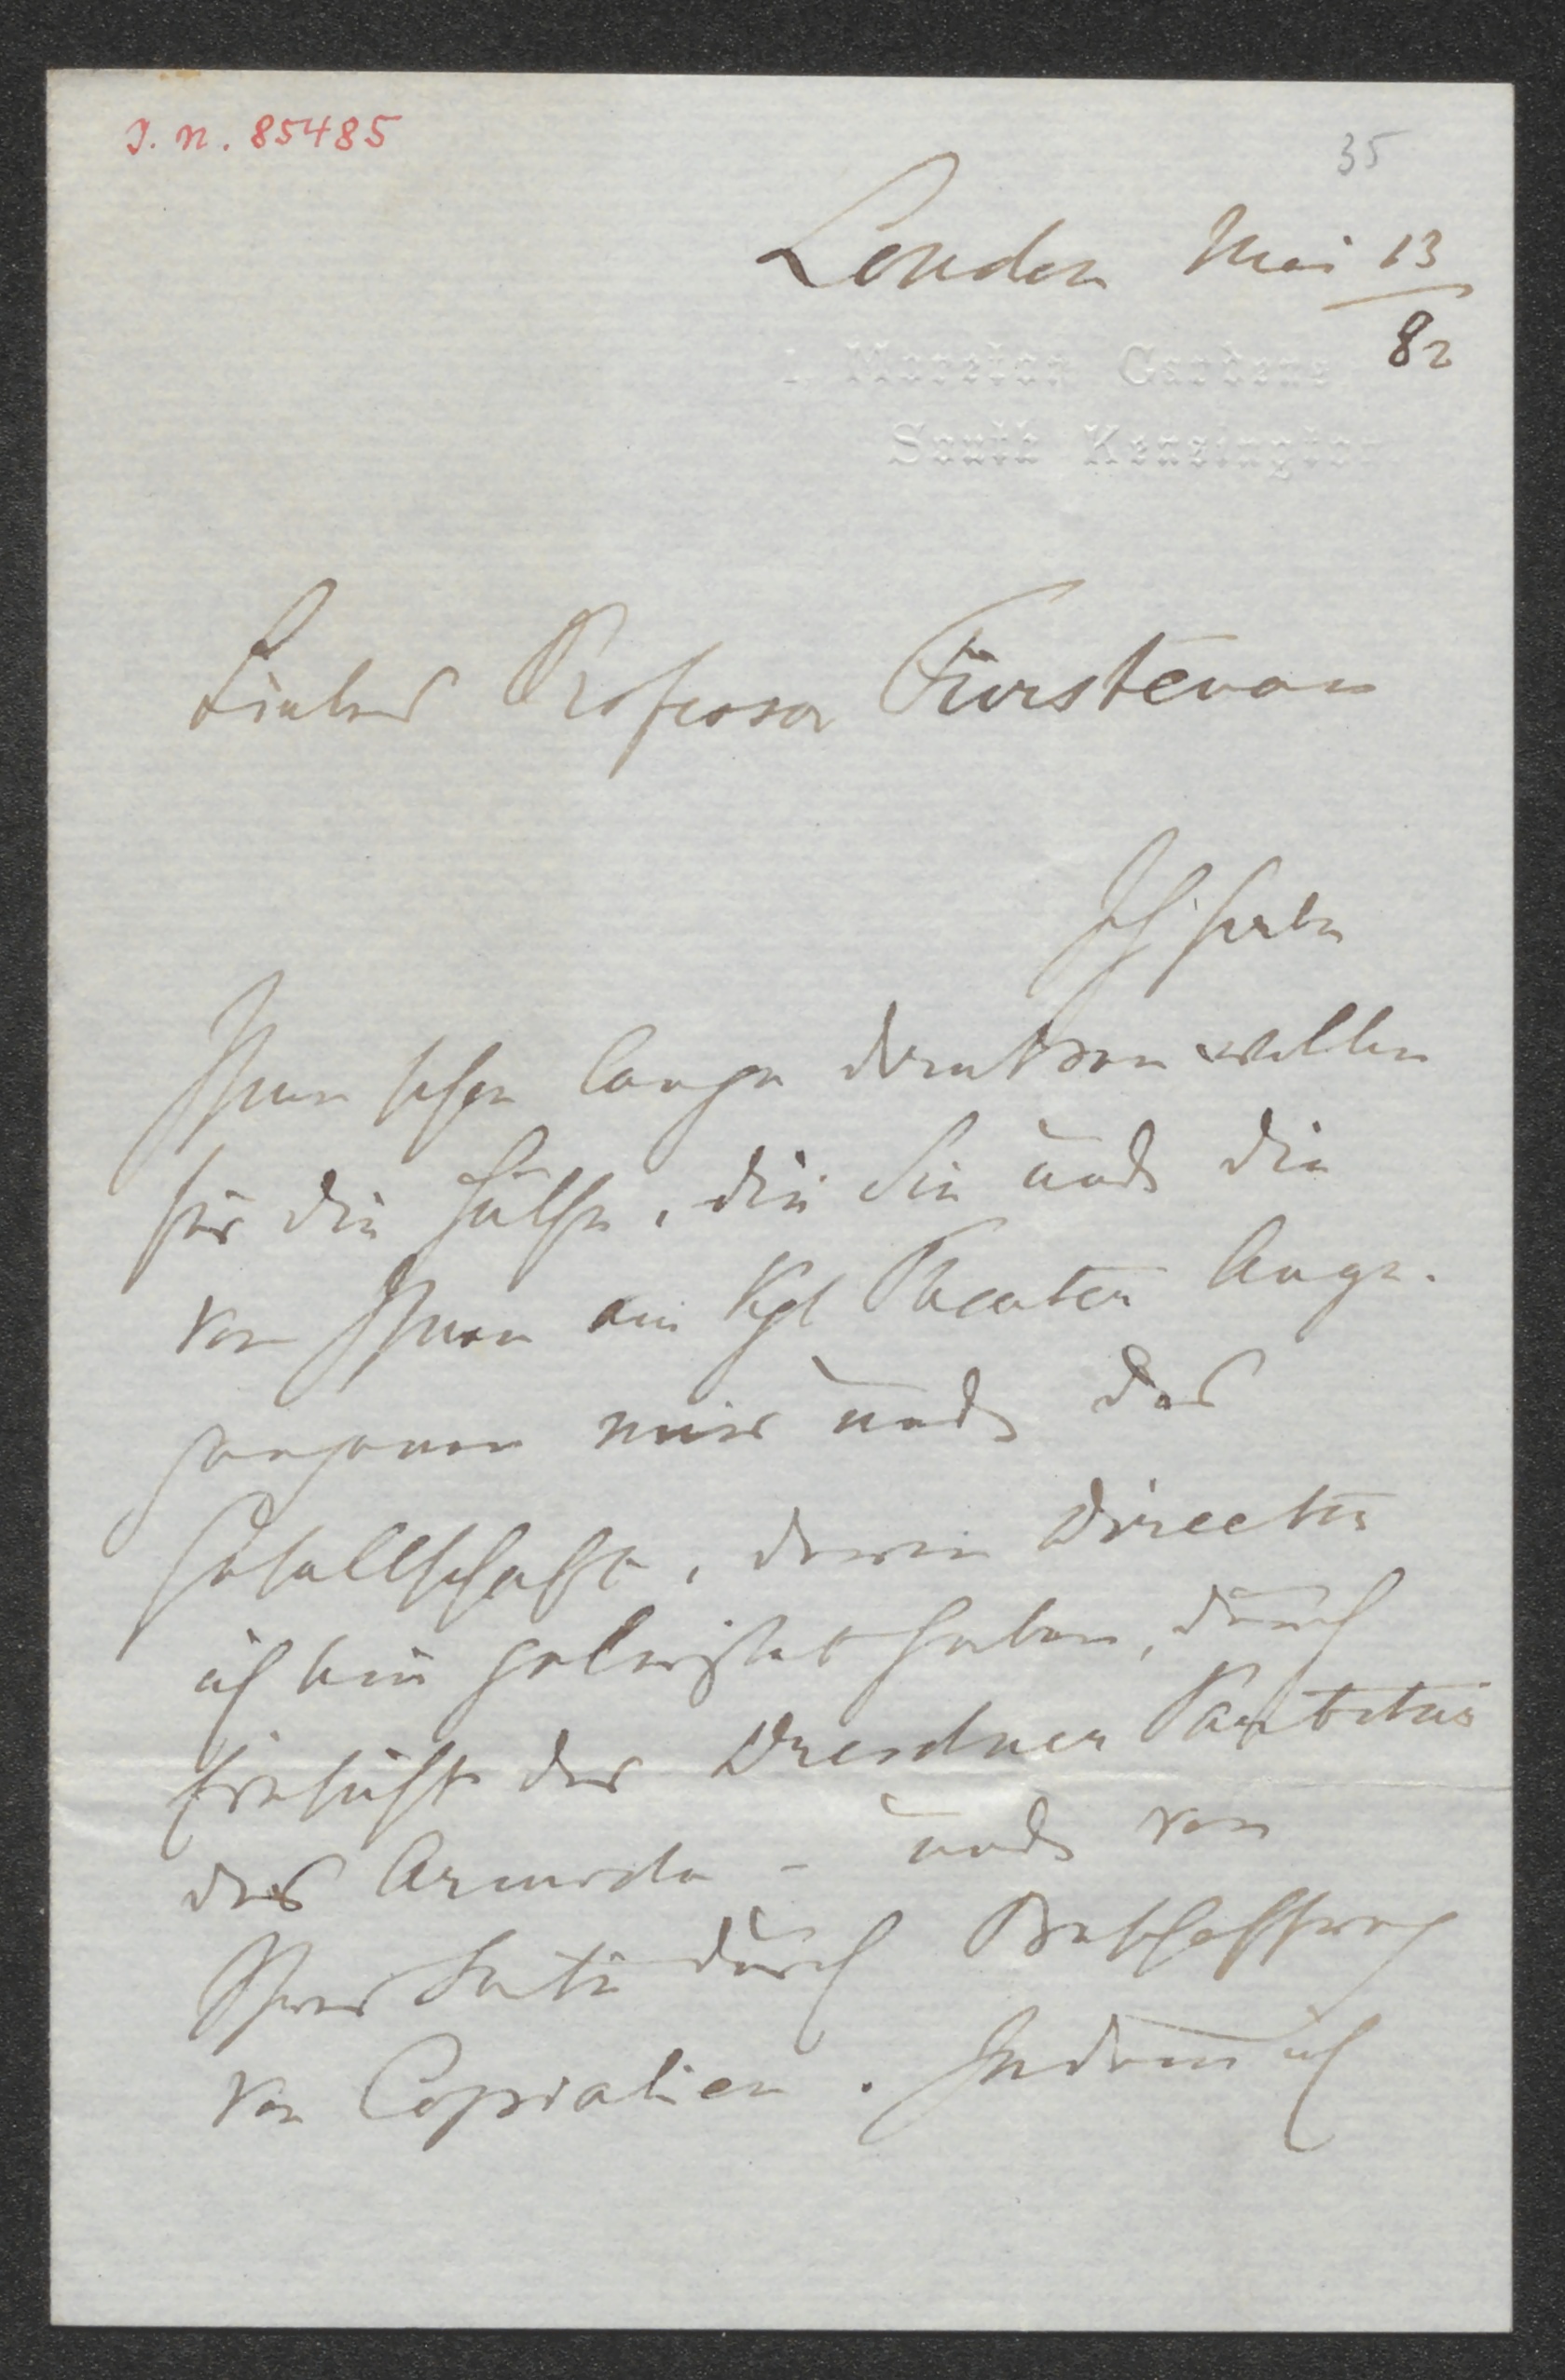 J. N. 85485
35
London Mai 13
82
1 Moreton Gardens
South Kensington
Lieber Professor Fürstenau
Ich habe
Ihnen schon lange danken wollen
für die Hülfe, die Sie und die
von Ihnen am Kgl Theater Ange-
zogenen mir und der
Gesellschaft, deren Director
ich bin geleistet haben, durch
Einsicht der Dresdner Partitur
der Armida - und von
Ihrer Seite durch Beschaffung
von Copialien. Indem ich